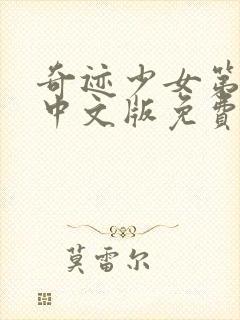 奇迹少女第
中文版免費
莫雷尔